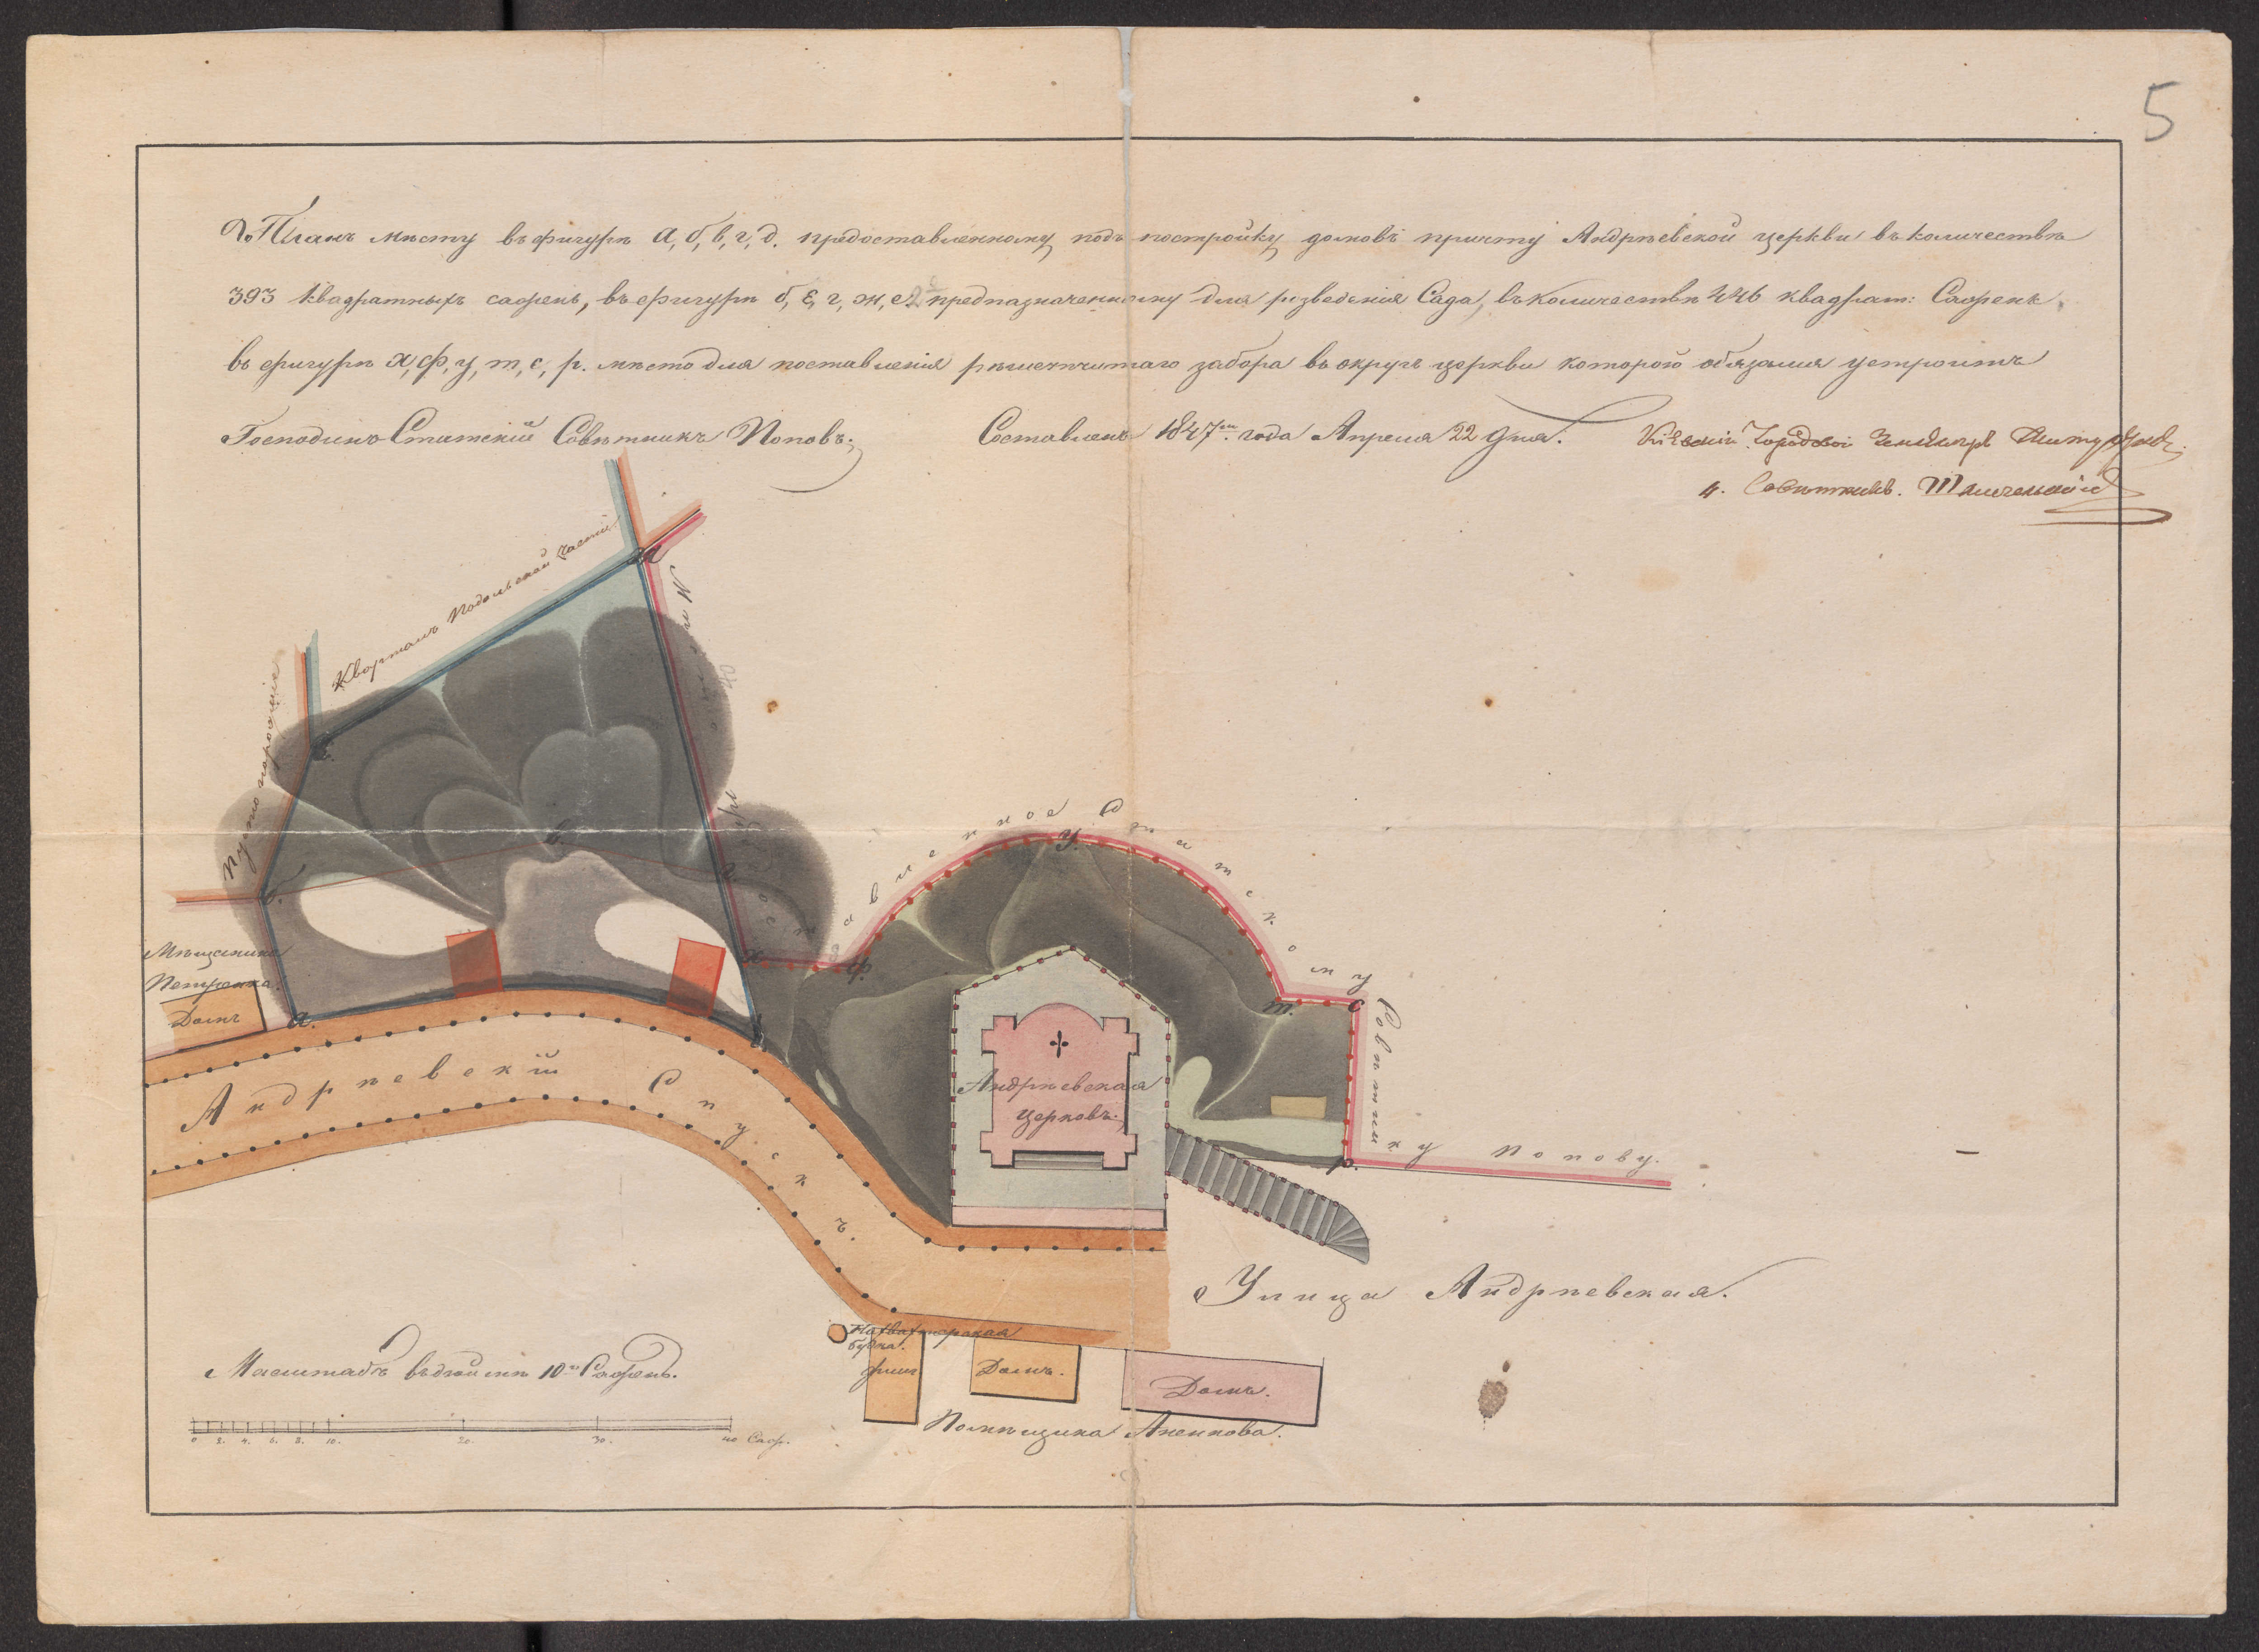 5
Планъ мѣсту въ фигурѣ а, б, в, г, д. предоставленному подъ постройку домовъ причту Андрѣевской церкви въ количествѣ
393 квадратныхъ сажень, въ фигурѣ б, г, ж, предназначенному для розведенія Сада, въ количествѣ 446 квадрат: Сажень
въ фигурѣ х, ф, у, т, с, р. мѣсто для поставленія рѣшетчитаго забора въ округъ церкви которой обязался устроить
Господинъ Статскій Совѣтникъ Поповъ;
Составленъ 1847го года Апреля 22 дня.
Кіевскій Городовой Землемѣръ
Совѣтникъ.
Кварталъ Подольской Части
Пусто порожнія
Мѣсто
предоставленное Статскому Совѣтнику Попову.
а.
б.
в.
х
ф.
у.
т.
с
р.
Мѣщанина
Петренка.
Домъ
Андрѣевскій Спускъ.
Андрѣевская
церковь.
Улица Андрѣевская.
будка.
флиг
Домъ.
Домъ.
Помѣщика Аненкова.
Масштабъ въ дюймѣ 10ть Сажень.
0 2. 4. 6. 8. 10. 20. 30. 40 Саж.